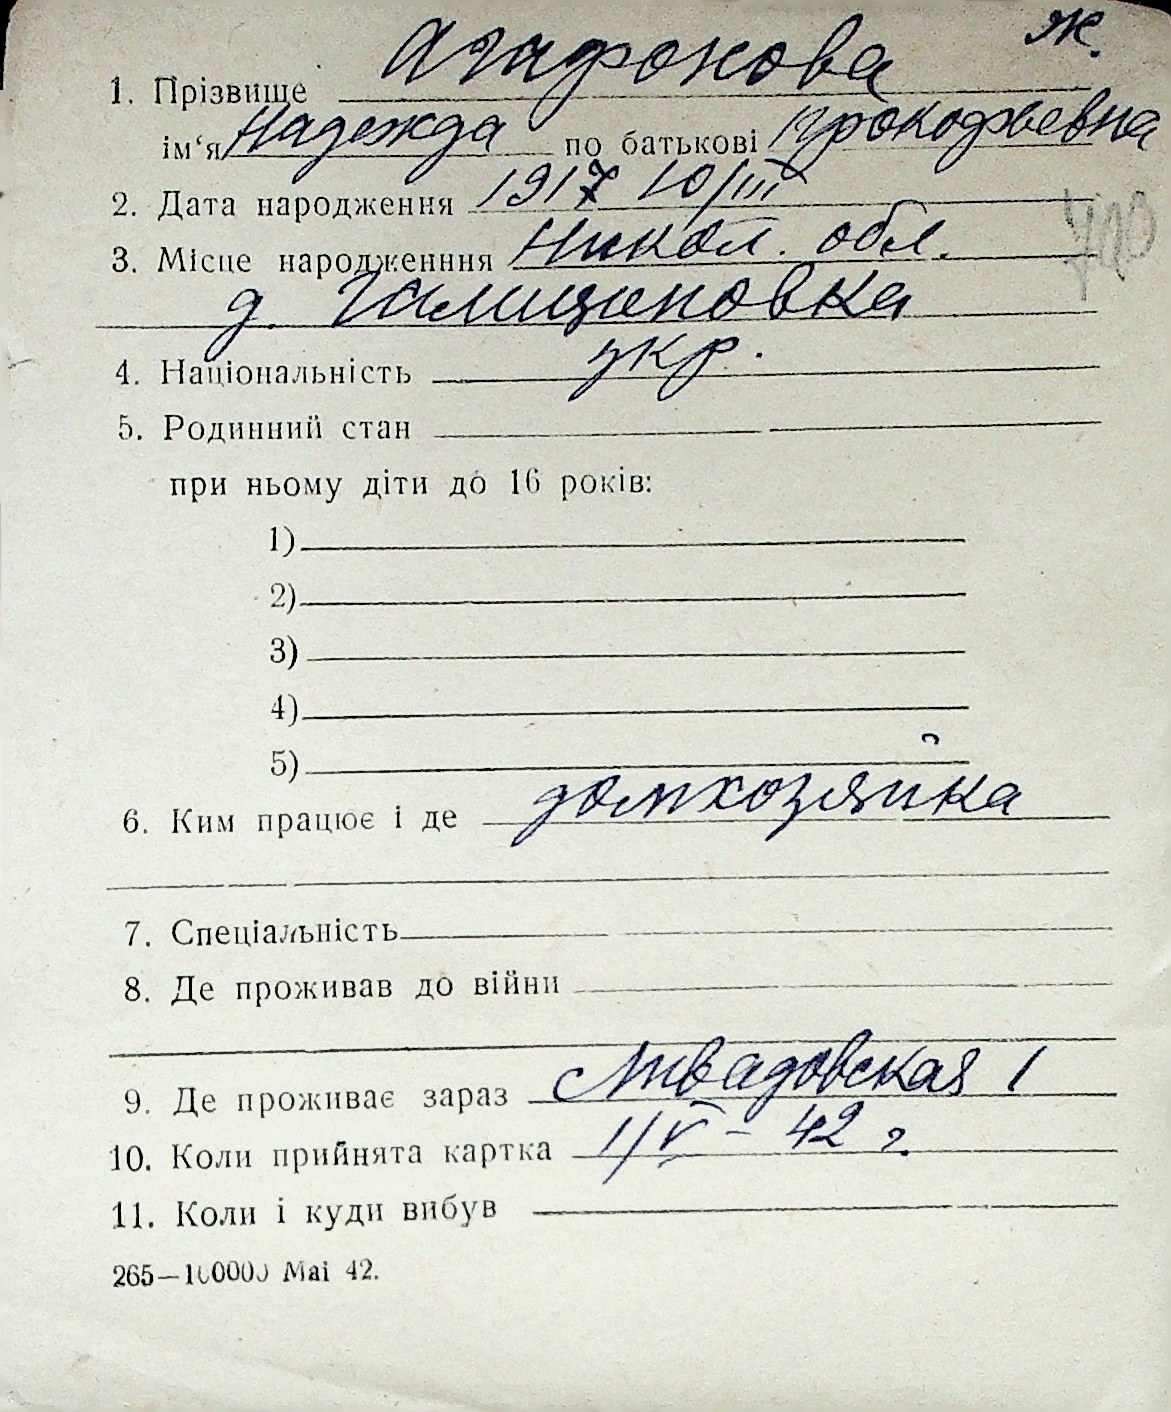 ж.
1. Прізвище Агафонова
ім‘я Надежда по батькові Прокофьевна
2. Дата народження 1917 10/III
3. Місце народженння Никол. обл.
д. Галициновка
4. Національність укр.
5. Родинний стан
при ньому діти до 16 років:
1)
2)
3)
4)
5)
6. Ким працює і де домхозяйка
7. Спеціальність
8. Де проживав до війни
9. Де проживає зараз Ливадовская 1
10. Коли прийнята картка 1/V – 42 г.
11. Коли і куди вибув
265—100000 Mai 42.